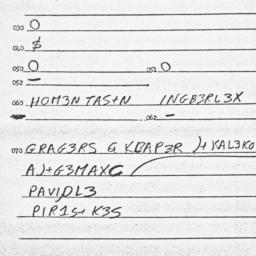 030 O
040 $
050 O 051 O
052 –
060 HOM3N TAS+N INGB3RL3X
062 –
070 GRAG3RS G KDAP3R J+ KAL3KO
AJ+G3MAXC
PAVIDL3
PIR1S+ K3S